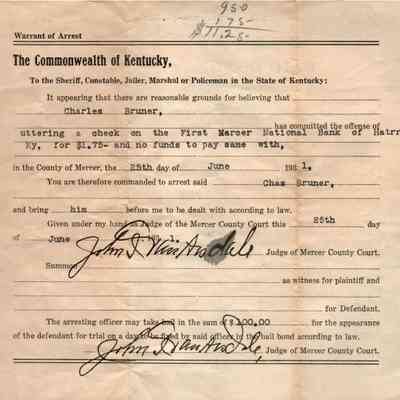 950
1 75-
$11.25-
Warrant of Arrest
The Commonwealth of Kentucky,
To the Sheriff, Constable, Jailer, Marshal or Policeman in the State of Kentucky:
It appearing that there are reasonable grounds for believing that
Charles Bruner,
has committed the offense of
uttering a check on the First Mercer National Bank of Hatrr
Ky, for $1.75- and no funds to pay same with,
in the County of Mercer, the 25th day of June 1931,
You are therefore commanded to arrest said Chas Bruner,
and bring him before me to be dealt with according to law.
Given under my hand as Judge of the Mercer County Court this 25th day
of June 1931.
John I. Van Arsdale Judge of Mercer County Court.
Summon
as witness for plaintiff and
for Defendant.
The arresting officer may take bail in the sum of $100.00 for the appearance
of the defendant for trial on a day to be fixed by said officer in the bail bond according to law.
John I. Van Arsdale, Judge of Mercer County Court.